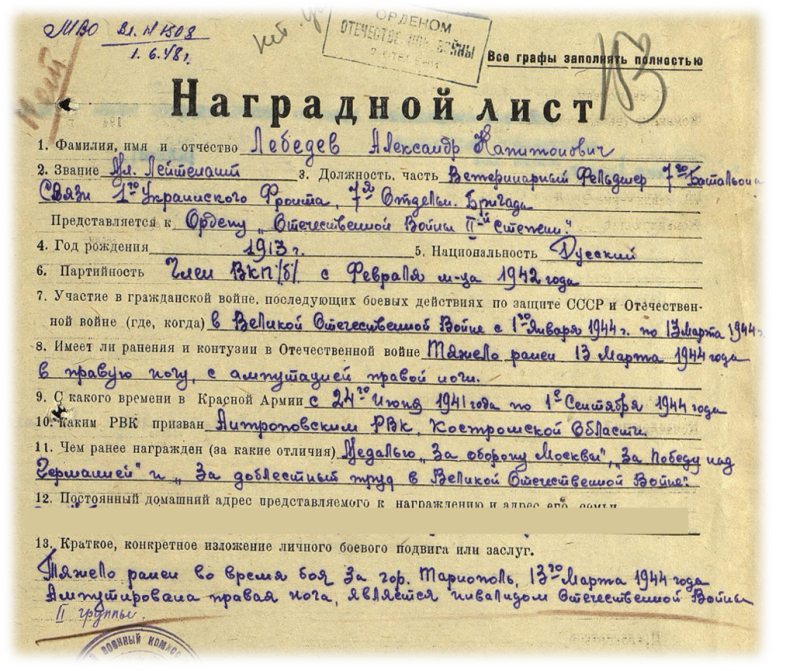 МВО Вх. № 1808
1.6.48 г.
нет
ОРДЕНОМ
ОТЕЧЕСТВЕННОЙ ВОЙНЫ
Все графы заполнять полностью
Наградной лист
1. Фамилия, имя и отчество Лебедев Александр Капитонович
2. Звание Мл. Лейтенант 3. Должность, часть Ветеринарный Фельдшер 7го Батальона
Связи 1го Украинского Фронта, 7я Отдельн. Бригада
Представляется к Ордену „Отечественной Войны II ой Степени"
4. Год рождения 1913 г. 5. Национальность Русский
6. Партийность Член ВКП/б/ с Февраля м-ца 1942 года
7. Участие в гражданской войне, последующих боевых действиях по защите СССР и Отечествен-
ной войне (где, когда) в Великой Отечественной Войне с 1го Января 1944 г. по 13 Марта 1944 г.
8. Имеет ли ранения и контузии в Отечественной войне Тяжело ранен 13 Марта 1944 года
в правую ногу, с ампутацией правой ноги.
9. С какого времени в Красной Армии с 24го Июня 1941 года по 1е Сентября 1944 года
10. Каким РВК призван Антроповским РВК, Костромской Области
11. Чем ранее награжден (за какие отличия) Медалью „За оборону Москвы", „За Победу над
Германией" и „За доблестный труд в Великой Отечественной Войне".
12. Постоянный домашний адрес представляемого к награждению и адрес его семьи
13. Краткое, конкретное изложение личного боевого подвига или заслуг.
Тяжело ранен во время боя за гор. Тариополь, 13го Марта 1944 года
Ампутирована правая нога, является инвалидом Отечественной Войны
II группы.
ВОЕННЫЙ КОМИС